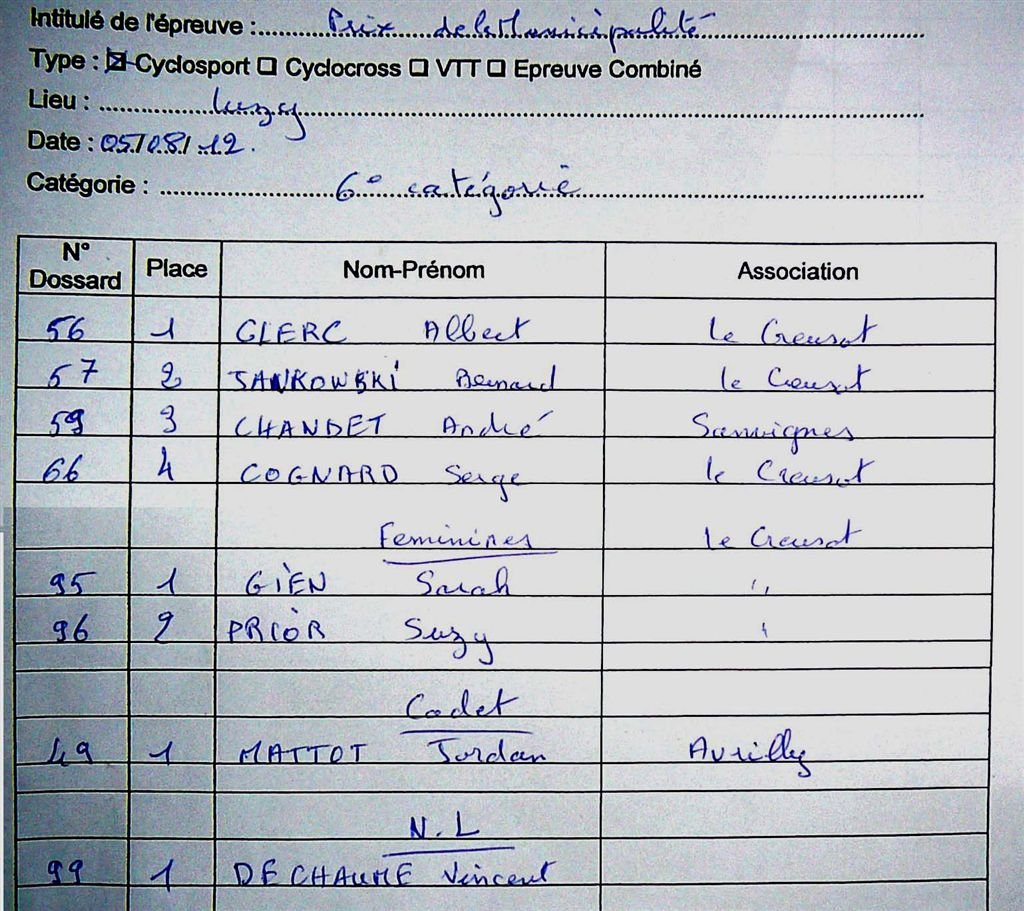 Intitulé de l'épreuve : Prix de la Municipalité
Type : ☒ Cyclosport ☐ Cyclocross ☐ VTT ☐ Epreuve Combiné
Lieu : Luzy
Date : 05/08/12.
Catégorie : 6° catégorie
N° Dossard Place Nom-Prénom Association
56 1 CLERC Albert le Creusot
57 2 JANKOWSKI Bernard le Creusot
59 3 CHANDET André Sanvignes
66 4 COGNARD Serge le Creusot
Feminines le Creusot
95 1 GIEN Sarah "
96 2 PRIOR Suzy "
Cadet
49 1 MATTOT Jordan Avrilly
N.L
99 1 DECHAUME Vincent